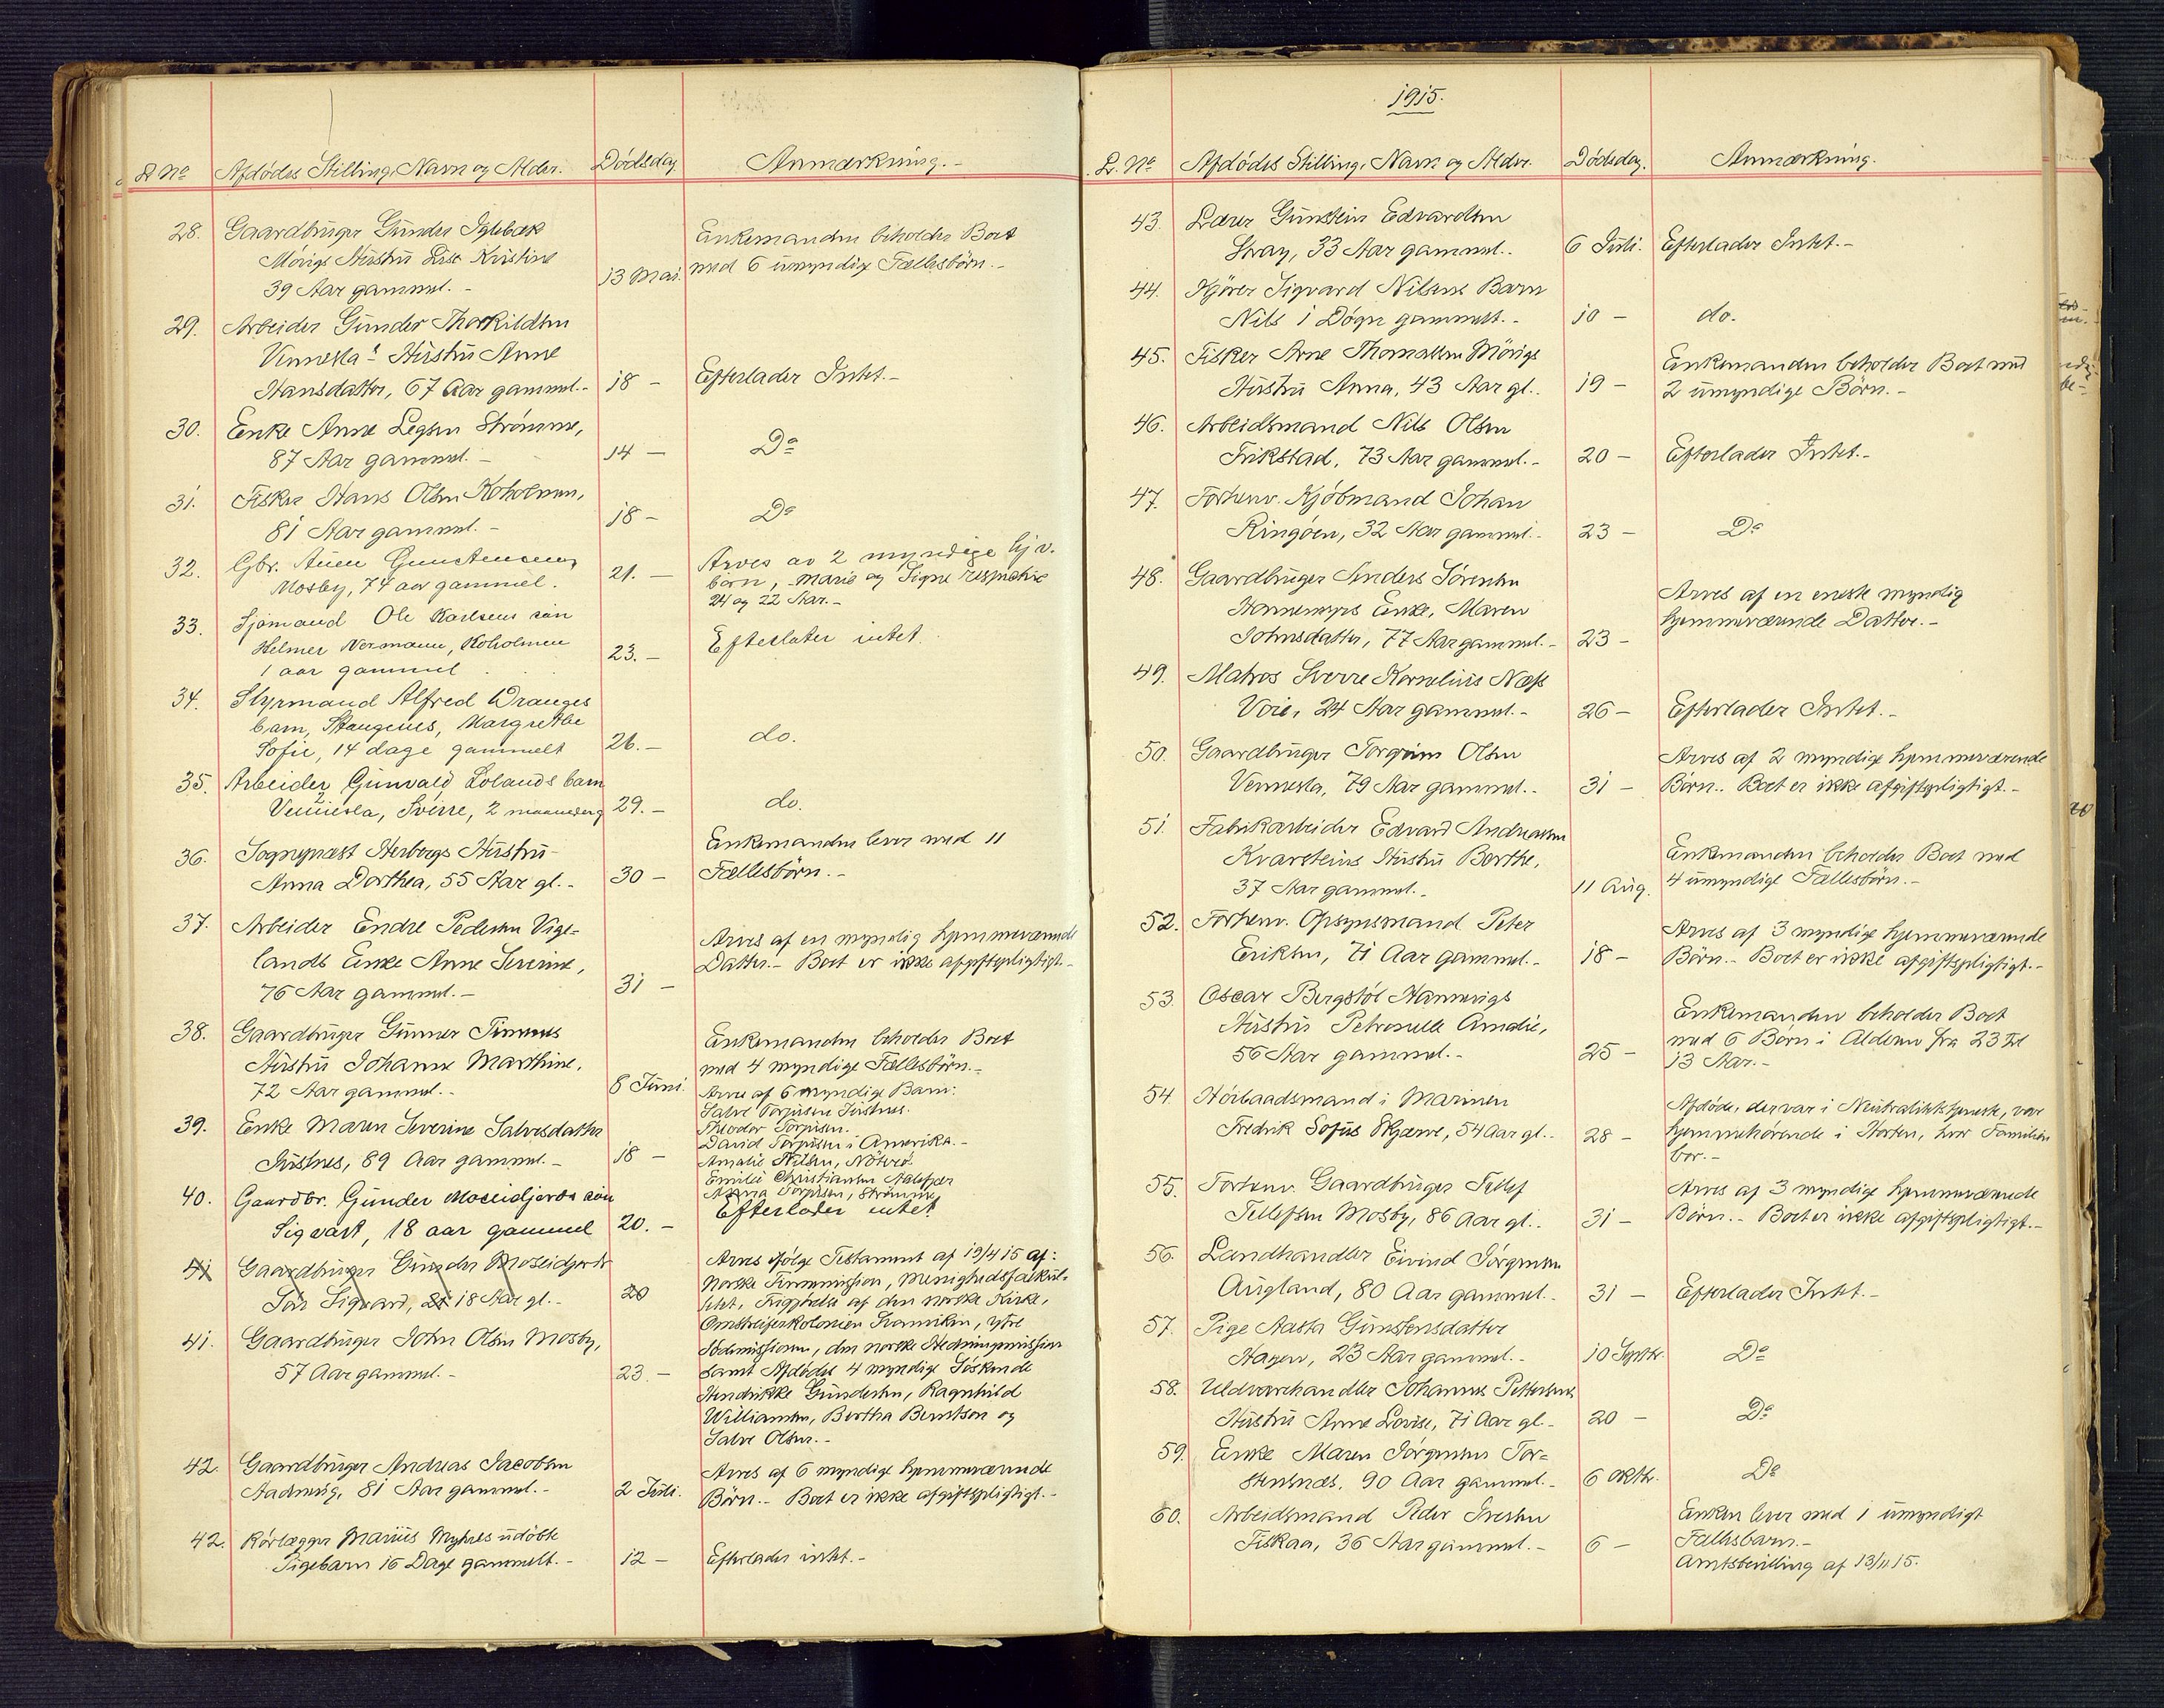 L. No Afdødes Stilling, Navn og Alder. Dødsdag. Anmærkning.-
28. Gaardbruger Gunder Iglebæk
Mövigs Hustru Lise Kristine
39 Aar gammel.- 13 Mai.
Enkemanden beholder Boet
med 6 umyndige Fællesbörn.-
29. Arbeider Gunder Thorkildsen
Vennesla's Hustru Anne
Hansdatter, 67 Aar gammel.- 18 - Efterlader Intet.-
30. Enke Anne Legsen Strömme,
87 Aar gammel.- 14 - Do
31. Fisker Hans Olsen Koholmen,
81 Aar gammel.- 18 - Do
32. Gbr. Aanen Gunstensen
Mosby, 74 aar gammel. 21. -
Arves av 2 myndige hjv.
børn, Marie og Signe respektive
24 og 22 Aar.-
33. Sjømand Ole Karlsens søn
Helmer Normann, Koholmen
1 aar gammel 23. - Efterlater intet.
34. Styrmand Alfred Dranges
barn, Stangenes, Margrethe
Sofie, 14 dage gammelt 26. - do.
35. Arbeider Gunvald Lolands barn
Vennesla, Sverre, 2 maaneder g 29. - do.
36. Sogneprest Herbergs Hustru
Anna Dorthea, 55 Aar gl.- 30 -
Enkemanden lever med 11
Fællesbörn.-
37. Arbeider Endre Pedersen Vige-
lands Enke Anne Severine,
76 Aar gammel.- 31 -
Arves af en myndig hjemmeværende
Datter.- Boet er ikke afgiftspligtigt.-
38. Gaardbruger Gunner Timenes
Hustru Johanne Marthine,
72 Aar gammel.- 8 Juni.
Enkemanden beholder Boet
med 4 myndige Fællesbörn.-
39. Enke Maren Severine Salvesdatter
Justnes, 89 Aar gammel.- 18 -
Arves af 6 myndige Barn:
Salve Torjusen Justnes.
Theodor Torjusen.
David Torjusen i Amerika.-
Amalie Nilsen, Nöterö.
Emilie Christiansen Aalefjær
Maria Torjusen, Strömme
40. Gaardbr. Gunder Moseidjords søn
Sigvart, 18 aar gammel 20. - Efterlader intet
41 Gaardbruger Gunder Moseidjords
Sön Sigvard, 21 18 Aar gl.- 20
41. Gaardbruger John Olsen Mosby,
57 Aar gammel.- 23. -
Arves ifölge Testament af 19/4 15 af:
Norske Finnemission, Menighedsfakul-
tetet, Frigjörelse af den norske Kirke,
Omstreiferkolonien Svanviken, ytre
Sødmissionen, den norske Hedningemission
samt Afdødes 4 myndige Søskende
Hendrikke Gundersen, Ragnhild
Williamsen, Bertha Berntson og
Salve Olsen.-
42. Gaardbruger Andreas Jacobsen
Aadneig, 81 Aar gammel.- 2 Juli.
Arves af 6 myndige hjemmeværende
Börn.- Boet er ikke afgiftspligtigt.-
42. Rörlægger Marius Myhres udöbte
Pigebarn 16 Dage gammelt.- 12 - Efterlader intet.-
1915.
L. No Afdödes Stilling, Navn og Alder. Dödsdag. Anmærkning.
43. Lærer Gunstein Edvardsen
Stray, 33 Aar gammel.- 6 Juli. Efterlader Intet.-
44. Kjörer Sigvard Nilsens Barn
Nils 1 Dögn gammelt.- 10 - do.
45. Fisker Arne Thomassen Mövigs
Hustru Anna, 43 Aar gl.- 19 -
Enkemanden beholder Boet med
2 umyndige Börn.-
46. Arbeidsmand Nils Olsen
Frikstad, 73 Aar gammel.- 20 - Efterlader Intet.-
47. Forhenv. Kjöbmand Johan
Ringöen, 32 Aar gammel.- 23 - Do
48. Gaardbruger Anders Sörensen
Hannemyrs Enke, Maren
Johnsdatter, 77 Aar gammel.- 23 -
Arves af en eneste myndig
hjemmeværende Datter.-
49. Matros Sverre Kornelius Næss
Voie, 24 Aar gammel.- 26 - Efterlader Intet.-
50. Gaardbruger Torgrim Olsen
Vennesla, 79 Aar gammel.- 31 -
Arves af 2 myndige hjemmeværende
Börn.- Boet er ikke afgiftspligtigt.-
51. Fabrikarbeider Edvard Andreassen
Kvarsteins Hustru Berthe,
37 Aar gammel.- 11 Aug.
Enkemanden beholder Boet med
4 umyndige Fællesbörn.-
52. Forhenv. Opsynsmand Peter
Eriksen, 71 Aar gammel.- 18 -
Arves af 3 myndige hjemmeværende
Börn.- Boet er ikke afgiftspligtigt.-
53. Oscar Bergstöl Hamrevigs
Hustru Petronelle Amalie,
56 Aar gammel.- 25 -
Enkemanden beholder Boet
med 6 Börn i Alderen fra 23 til
13 Aar.-
54 Hörbaadsmand i Marinen
Fredrik Sofus Skjærve, 54 Aar gl.- 28 -
Afdöde, der var i Neutralitetstjeneste, var
hjemmehörende i Horten, hvor Familien
bor.-
55. Forhenv. Gaardbruger Tellef
Tellefsen Mosby, 86 Aar gl.- 31 -
Arves af 3 myndige hjemmeværende
Börn.- Boet er ikke afgiftspligtigt.-
56. Landhandler Eivind Jörgensen
Augland, 80 Aar gammel.- 31 - Efterlader Intet.-
57. Pige Aasta Gunstensdatter
Hagen, 23 Aar gammel.- 10 Septbr. Do
58. Uldvarehandler Johannes Pettersens
Hustru Anne Lovise, 71 Aar gl.- 20 - Do
59. Enke Maren Jörgensen Tor-
stensnæs, 90 Aar gammel.- 6 Oktbr. Do
60. Arbeidsmand Peder Iversen
Fiskaa, 36 Aar gammel.- 6 -
Enken lever med 1 umyndigt
Fællesbarn.-
Amtsbevilling af 13/11 15.